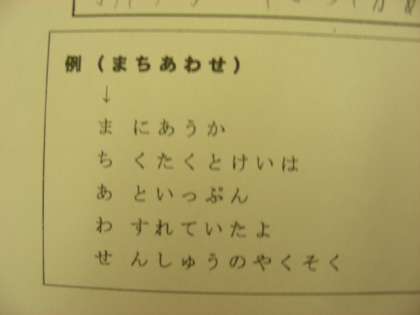 例(まちあわせ)
↓
ま にあうか
ち くたくとけいは
あ といっぷん
わ すれていたよ
せ んしゅうのやくそく